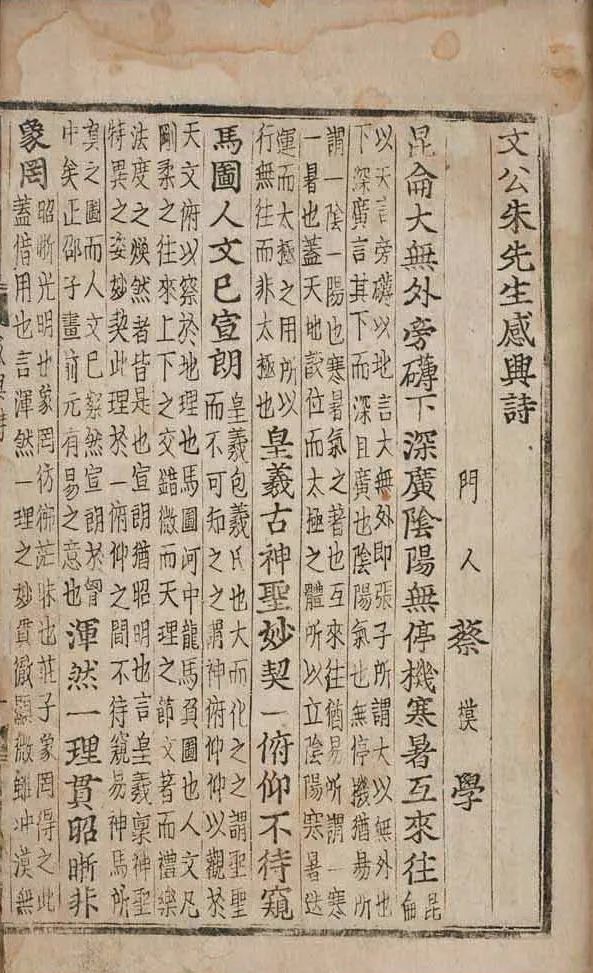 文公朱先生感興詩
門人蔡模學
昆侖大無外旁礴下深廣陰陽無停機寒暑互來往昆侖
以天言旁礴以地言大無外即張子所謂大以無外也
下深廣言其下而深且廣也陰陽氣也無停機猶易所
謂一陰一陽也寒暑氣之著也互來往猶易所謂一寒
一暑也蓋天地設位而太極之體所以立陰陽寒暑迭
運而太極之用所以
行無往而非太極也
皇羲古神聖妙契一俯仰不待窺
馬圖人文已宣朗
皇羲包羲氏也大而化之之謂聖聖
而不可知之之謂神俯仰仰以觀於
天文俯以察於地理也馬圖河中龍馬負圖也人文凡
剛柔之往來上下之交錯微而天理之節文著而禮樂
法度之煥然者皆是也宣朗猶昭明也言皇羲稟神聖
特異之姿妙契此理於一俯仰之間不待窺易神馬所
負之圖而人文已粲然宣朗於胷
中矣正邵子畫前元有易之意也
渾然一理貫昭晰非
象罔
昭晰光明也象罔彷彿茫昧也莊子象罔得之此
蓋借用也言渾然一理之妙貫徹顯微雖冲漠無